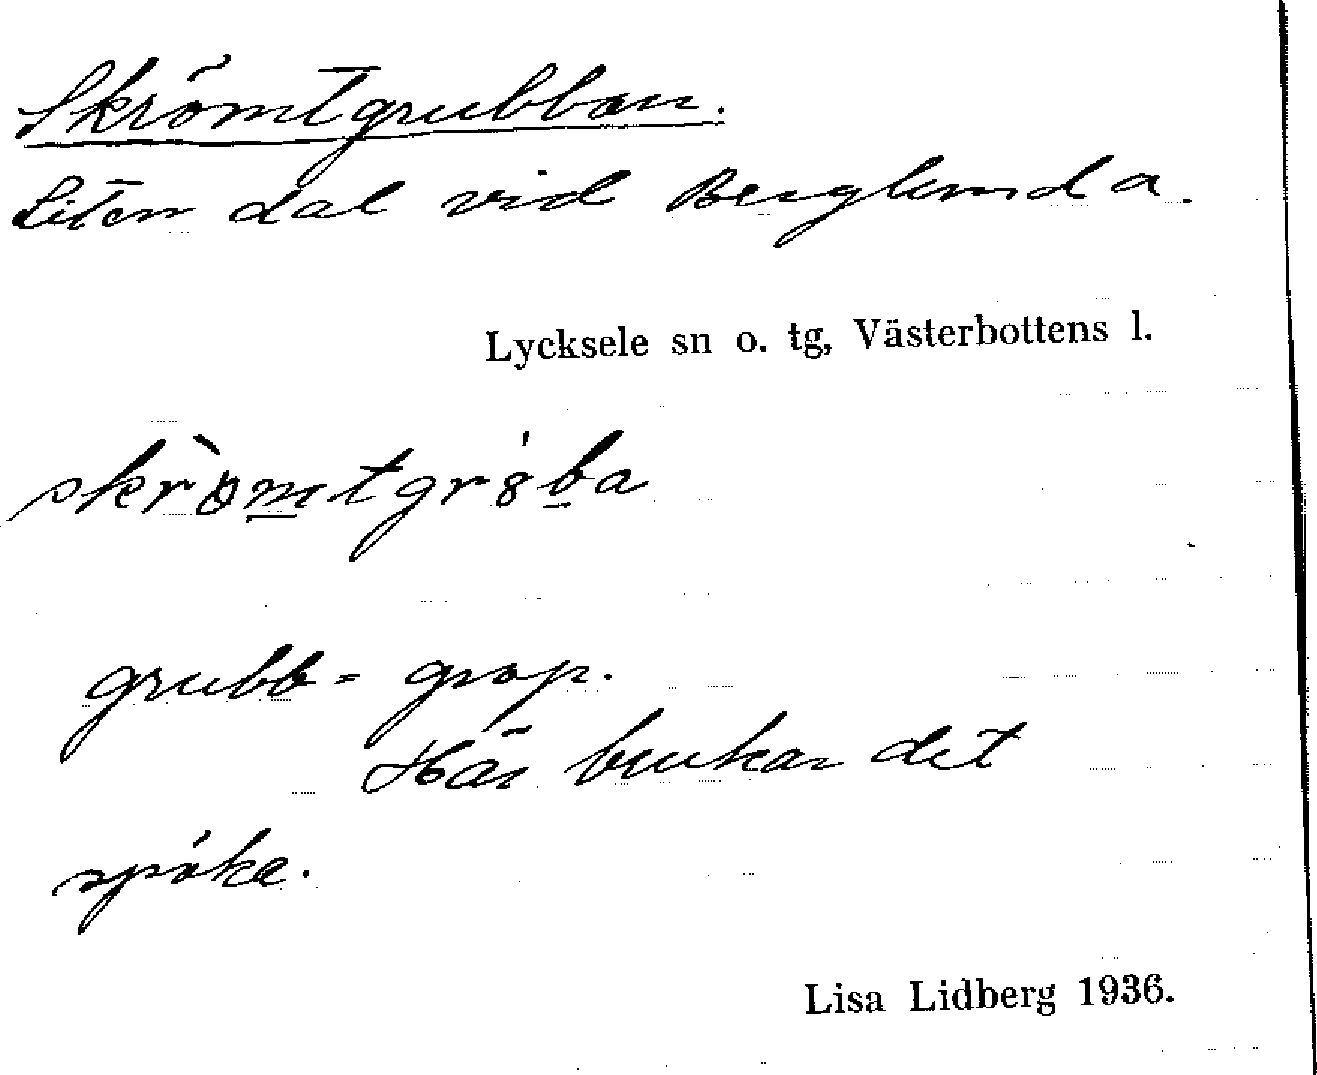 Skrömtgrubban.
Liten dal vid Berglunda.
Lycksele sn o. tg, Västerbottens l.
grubb = grop.
Här brukar det
spöka.
Lisa Lidberg 1936.